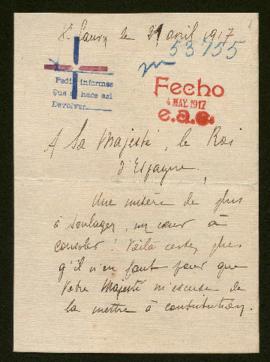 le 31 avril 1917
53155
Pedir informes
Que hace así
Devolver
Fecho
4 MAY. 1917
e.a.c.
A Sa Majesté, le Roi
d'Espagne,
Une misère de plus
à soulager, un cœur à
consoler! Voilà certes plus
qu'il n'en faut pour que
Votre Majesté m'excuse de
la mettre à contribution.